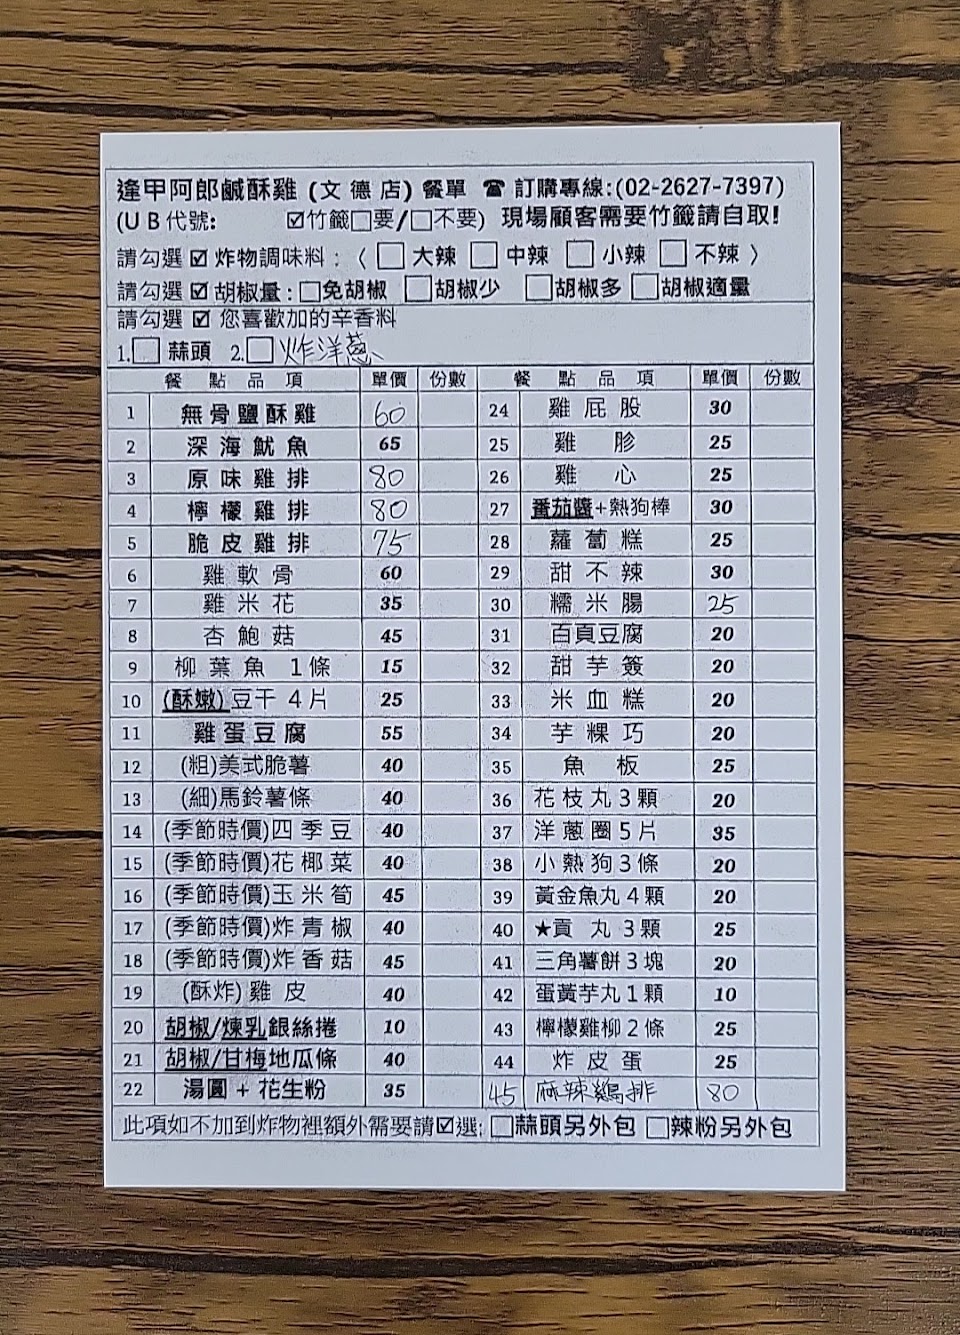 逢甲阿郎鹹酥雞(文德店)餐單 ☎ 訂購專線:(02-2627-7397)
(UB代號: ☑竹籤□要/□不要) 現場顧客需要竹籤請自取!
請勾選☑炸物調味料:〈□大辣 □中辣 □小辣 □不辣〉
請勾選☑胡椒量:□免胡椒 □胡椒少 □胡椒多 □胡椒適量
請勾選☑您喜歡加的辛香料
1.□蒜頭 2.□炸洋蔥
餐點品項 單價 份數 餐點品項 單價 份數
1 無骨鹽酥雞 60 24 雞屁股 30
2 深海魷魚 65 25 雞胗 25
3 原味雞排 80 26 雞心 25
4 檸檬雞排 80 27 番茄醬+熱狗棒 30
5 脆皮雞排 75 28 蘿蔔糕 25
6 雞軟骨 60 29 甜不辣 30
7 雞米花 35 30 糯米腸 25
8 杏鮑菇 45 31 百頁豆腐 20
9 柳葉魚 1條 15 32 甜芋簽 20
10 (酥嫩)豆干4片 25 33 米血糕 20
11 雞蛋豆腐 55 34 芋粿巧 20
12 (粗)美式脆薯 40 35 魚板 25
13 (細)馬鈴薯條 40 36 花枝丸3顆 20
14 (季節時價)四季豆 40 37 洋蔥圈5片 35
15 (季節時價)花椰菜 40 38 小熱狗3條 20
16 (季節時價)玉米筍 45 39 黃金魚丸4顆 20
17 (季節時價)炸青椒 40 40 ★貢丸3顆 25
18 (季節時價)炸香菇 45 41 三角薯餅3塊 20
19 (酥炸)雞皮 40 42 蛋黃芋丸1顆 10
20 胡椒/煉乳銀絲捲 10 43 檸檬雞柳2條 25
21 胡椒/甘梅地瓜條 40 44 炸皮蛋 25
22 湯圓+花生粉 35 45 麻辣雞排 80
此項如不加到炸物裡額外需要請☑選:□蒜頭另外包 □辣粉另外包